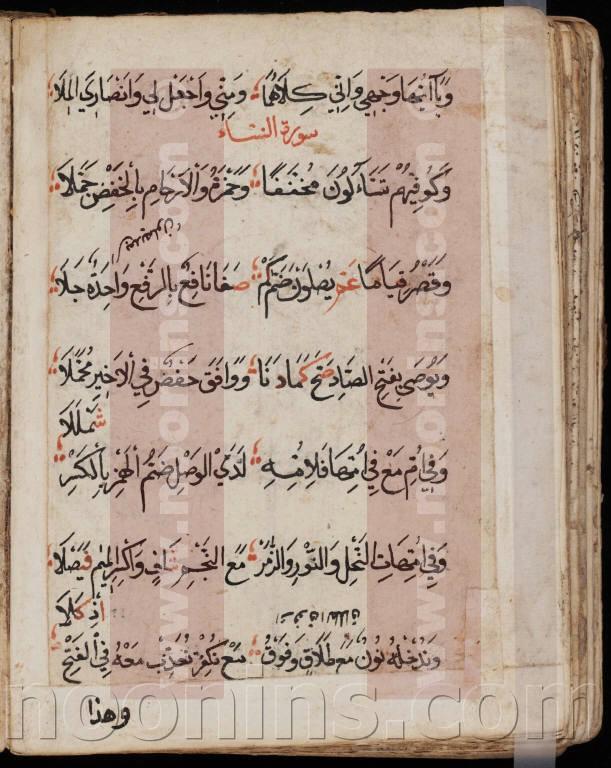 وَيَاآتُهَا وَجْهِي وَإِنِّي كِلَاهُمَا وَمِنِّي وَاجْعَلْ لِي وَأَنْصَارِيَ الْمِلَا
سورة النساء
وَكُوفِيُّهُمْ تَسَّاءَلُونَ مُخَفَّفًا وَحَمْزَةُ وَالْأَرْحَامِ بِالْخَفْضِ جَمَّلَا
وَقَصْرُ قِيَامًا عَمَّ يُصْلَوْنَ ضُمَّ كَمْ صَفَا نَافِعٌ بِالرَّفْعِ وَاحِدَةٌ جَلَا
وَيُوصَى بِفَتْحِ الصَّادِ صَحَّ كَمَا دَنَا وَوَافَقَ حَفْصٌ فِي الْأَخِيرِ مُحَمَّلَا
وَفِي أُمِّ مَعْ فِي أُمِّهَا فَلِأُمِّهِ لَدَى الْوَصْلِ ضَمُّ الْهَمْزِ بِالْكَسْرِ شَمْلَلَا
وَفِي أُمَّهَاتِ النَّحْلِ وَالنُّورِ وَالزُّمَرْ مَعَ النَّجْمِ شَافٍ وَاكْسِرِ الْمِيمَ فَيْصَلَا
وَنُدْخِلْهُ نُونٌ مَعْ طَلَاقٍ وَفَوْقُ مَعْ نُكَفِّرْ نُعَذِّبْ مَعْهُ فِي الْفَتْحِ إِذْ كَلَا
وهذا
noonins.com
www.noonins.com
www.noonins.com